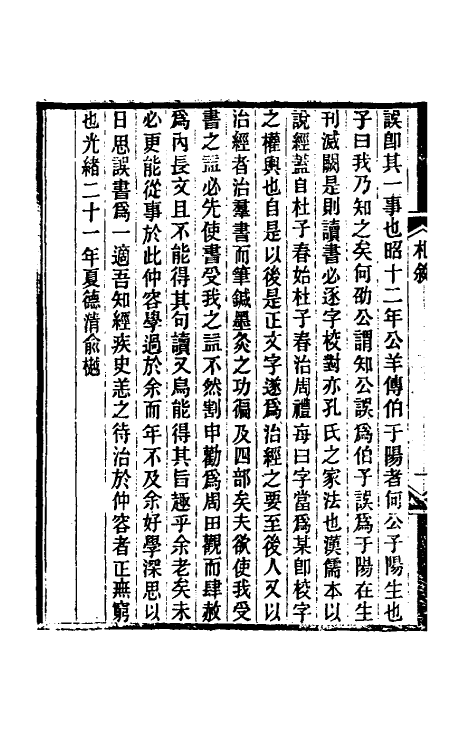 札敘
誤卽其一事也昭十二年公羊傳伯于陽者何公子陽生也
子曰我乃知之矣何劭公謂知公誤爲伯子誤爲于陽在生
刊滅闕是則讀書必逐字校對亦孔氏之家法也漢儒本以
說經蓋自杜子春始杜子春治周禮每曰字當爲某卽校字
之權輿也自是以後是正文字遂爲治經之要至後人又以
治經者治羣書而筆鍼墨灸之功徧及四部矣夫欲使我受
書之益必先使書受我之益不然割申勸爲周田觀而肆赦
爲內長文且不能得其句讀又烏能得其旨趣乎余老矣未
必更能從事於此仲容學過於余而年不及余好學深思以
日思誤書爲一適吾知經疾史恙之待治於仲容者正無窮
也光緒二十一年夏德淸俞樾